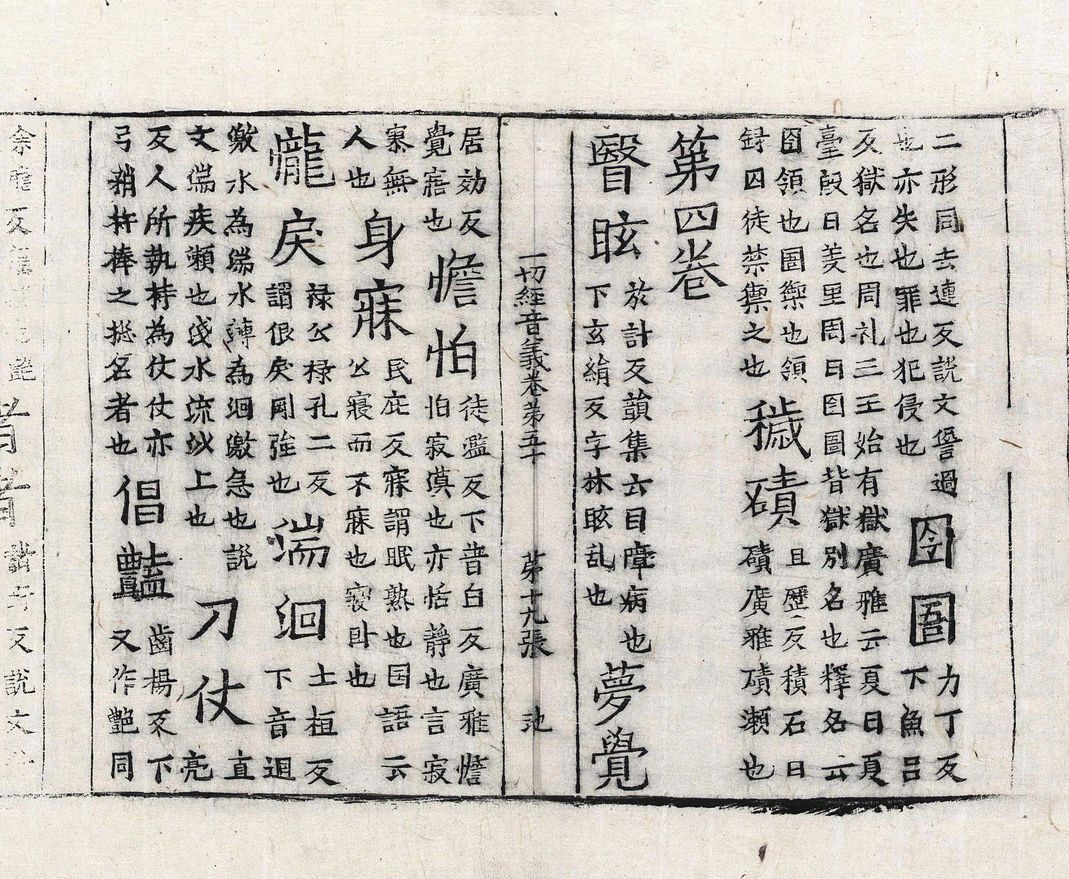 二形同去連反説文諐過
也亦失也罪也犯侵也
囹圄
力丁反
下魚呂
反獄名也周礼三王始有獄廣雅云夏曰夏
臺殷曰羑里周曰囹圄皆獄別名也釋名云
囹領也圄禦也領
録囚徒禁禦之也
穢磧
且歷反積石曰
磧廣雅磧瀬也
第四卷
瞖眩
於計反韻集云目障病也
下玄絹反字林眩乱也
夢覺
一切經音義卷第五十 第十九張 池
居効反
覺寤也
憺怕
徒濫反下普白反廣雅憺
怕寂漠也亦恬静也言寂
寞無
人也
身寐
民庇反寐謂眠熟也国語云
公寝而不寐也寝卧也
㦕戾
禄公禄孔二反
謂佷戾剛強也
湍洄
土桓反
下音迴
激水為湍水薄為洄激急也説
文湍疾瀬也淺水流沙上也
刀仗
直
亮
反人所執持為仗仗亦
弓矟杵棒之揔名者也
倡豔
齒楊反下
又作艶同
反説文